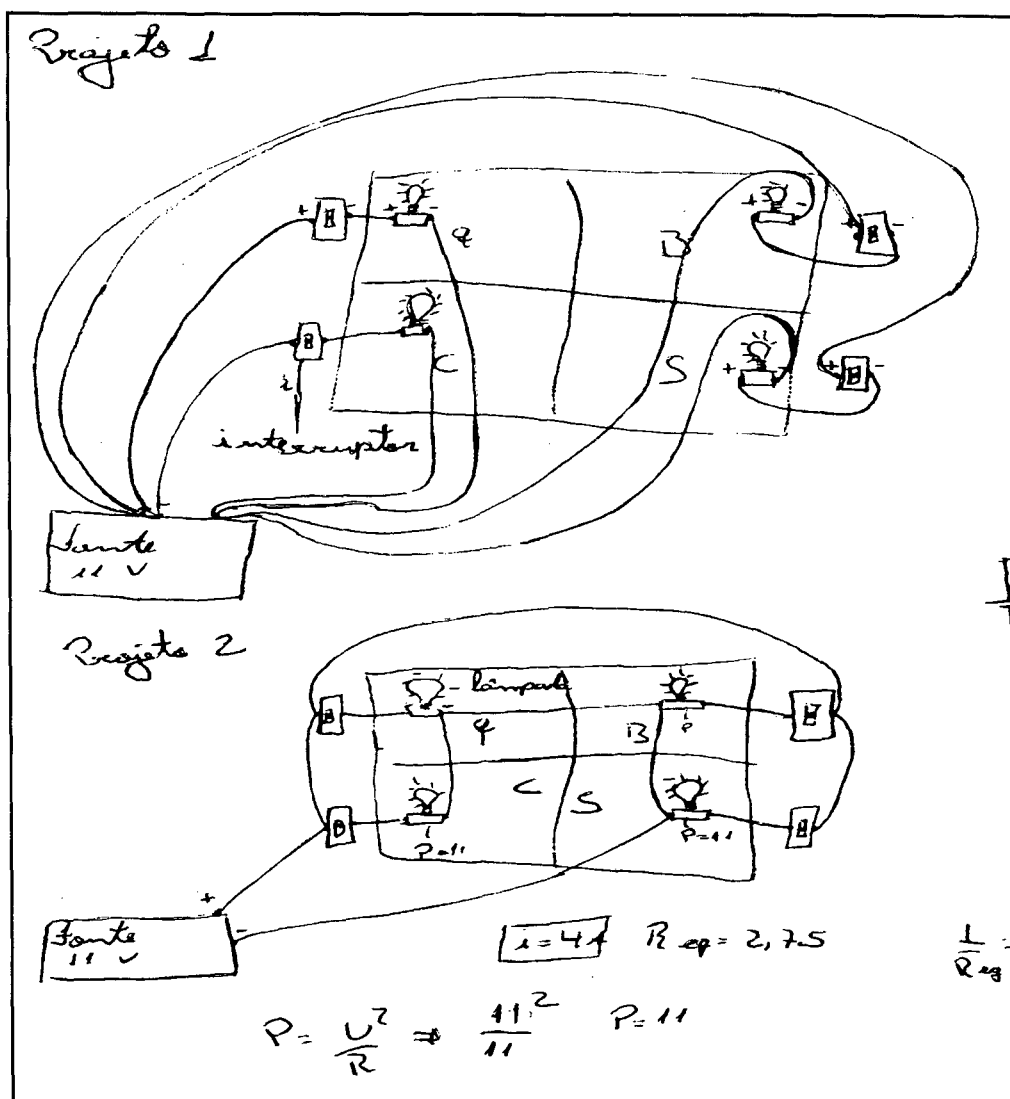 Projeto 1
+ - + -
Q
B
+ - + -
C
S
+ - + -
i
interruptor
-
Fonte
11 V
Projeto 2
- lâmpada
-
Q
B
P
C
S
P=11
P=11
+
-
Fonte
11 V
i = 4A Req = 2,75
1/Req =
P = U²/R ⇒ 11²/11 P = 11